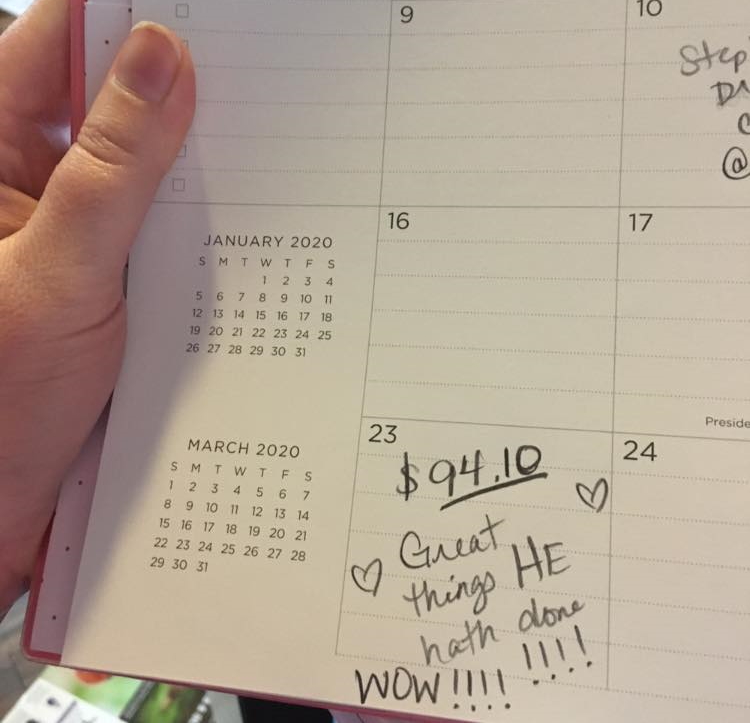 9
10
Step
@
JANUARY 2020
S M T W T F S
1 2 3 4
5 6 7 8 9 10 11
12 13 14 15 16 17 18
19 20 21 22 23 24 25
26 27 28 29 30 31
16
17
Preside
MARCH 2020
S M T W T F S
1 2 3 4 5 6 7
8 9 10 11 12 13 14
15 16 17 18 19 20 21
22 23 24 25 26 27 28
29 30 31
23
24
$94.10
Great
things HE
hath done
WOW!!!! !!!!